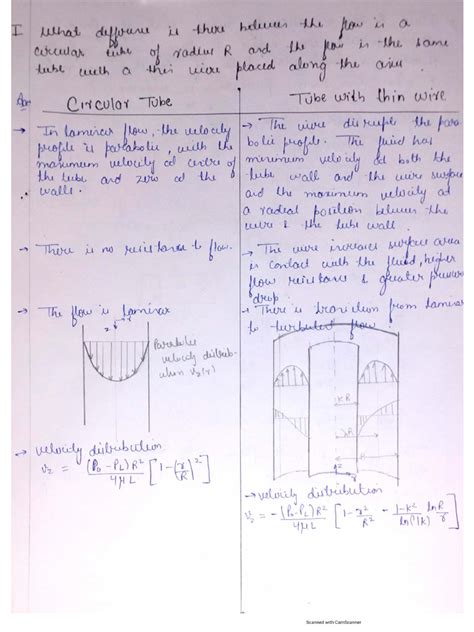 I What difference is there between the flow in a
circular tube of radius R and the flow in the same
tube with a thin wire placed along the axis.
Ans
Circular Tube
→ In laminar flow, the velocity
profile is parabolic, with the
maximum velocity at centre of
the tube and zero at the
walls.
→ There is no resistance to flow.
→ The flow is laminar
Parabolic
velocity distrib-
ution vz(r)
→ velocity distribution
vz = (Po-PL)R² / 4μL [1-(r/R)²]
Tube with thin wire
→ The wire disrupts the para
bolic profile. The fluid has
minimum velocity at both the
tube wall and the wire surface
and the maximum velocity at
a radial position between the
wire & the tube wall.
→ The wire increases surface area
in contact with the fluid, higher
flow resistance & greater pressure
drop.
→ There is transition from laminar
to turbulent flow.
kR
λR
R
z
→ velocity distribution
vz = -(Po-PL)R² / 4μL [1-r²/R² - 1-k²/ln(1/k) ln R/r]
Scanned with CamScanner